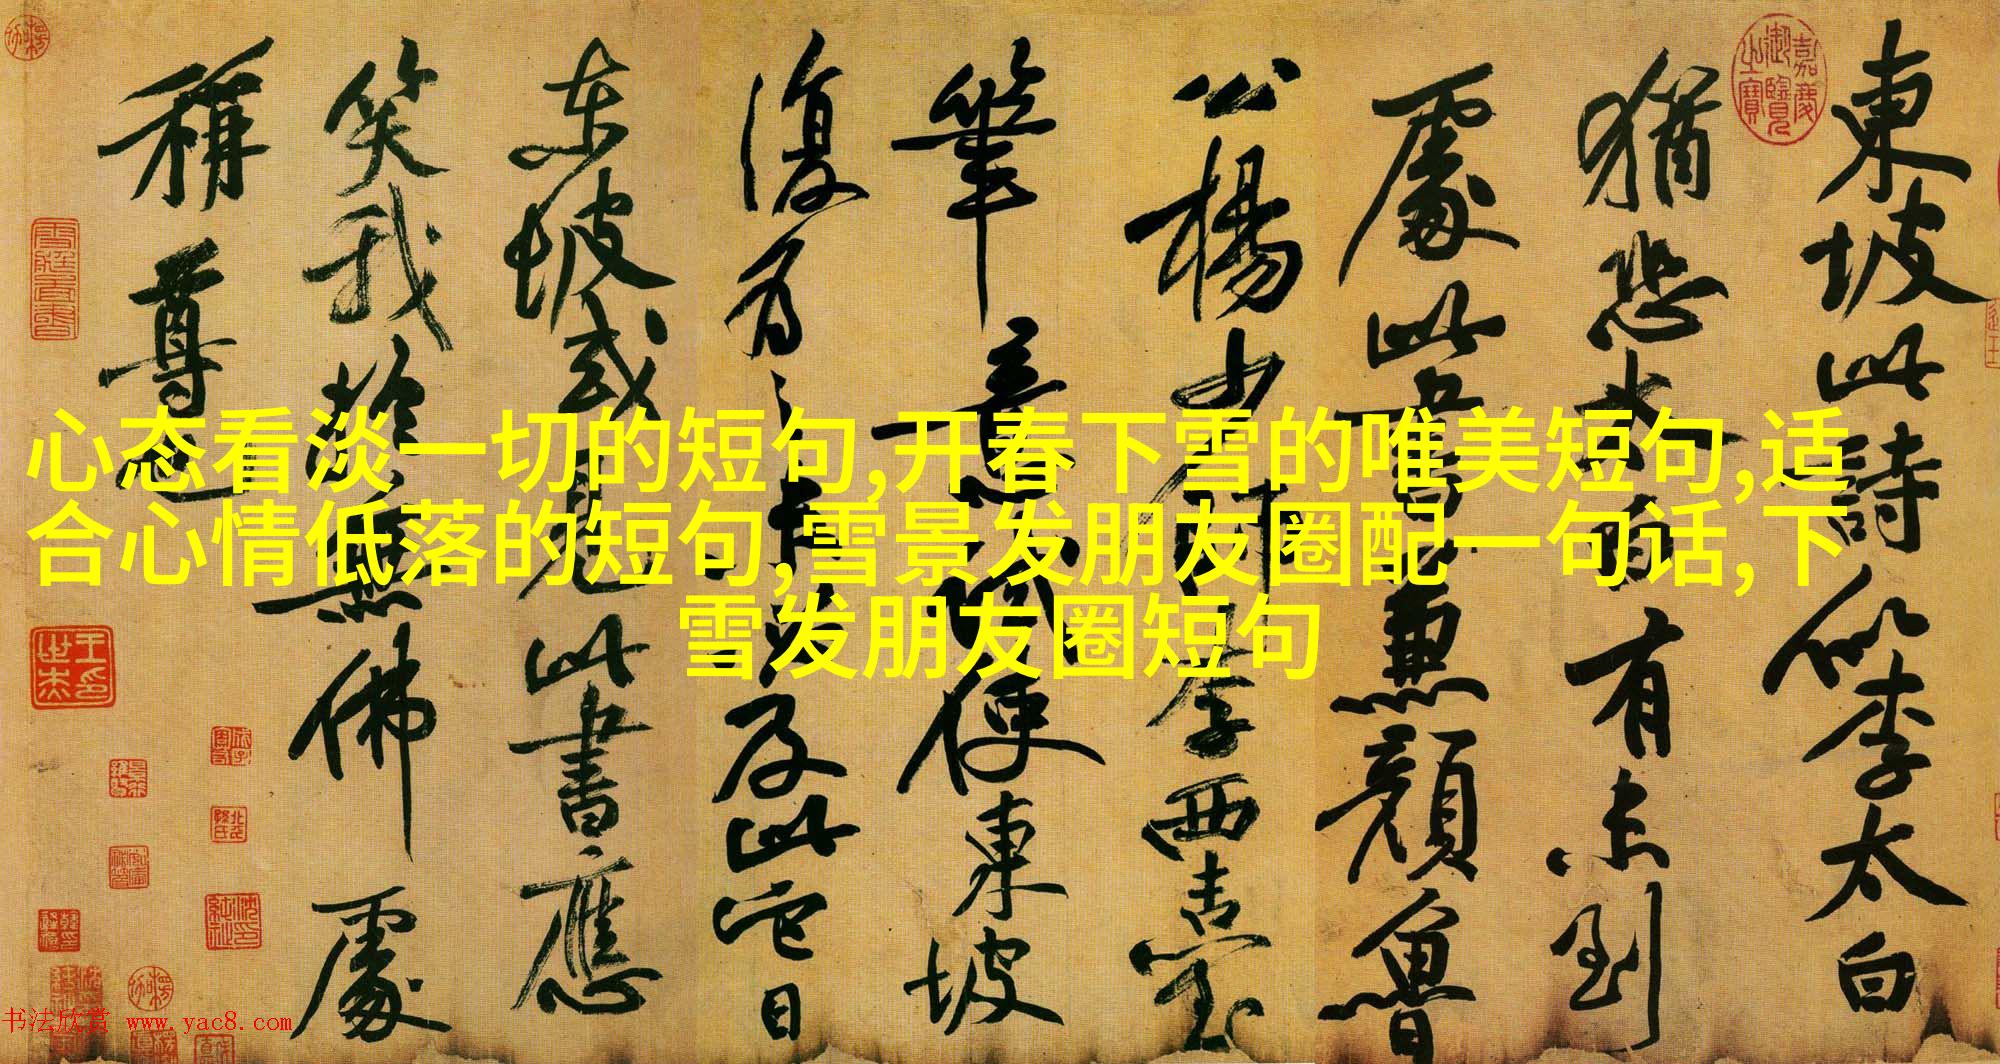 東坡此詩似李太白
猶恐太白有未到
處此書兼顏魯
公楊少師李西臺
筆意試使東坡
復為之未必及此它日
東坡或見此書應
笑我於無佛處
稱尊也
心态看淡一切的短句,开春下雪的唯美短句,适
合心情低落的短句,雪景发朋友圈配一句话,下
雪发朋友圈短句
嘉慶御覽之寶
书法欣赏 www.yac8.com